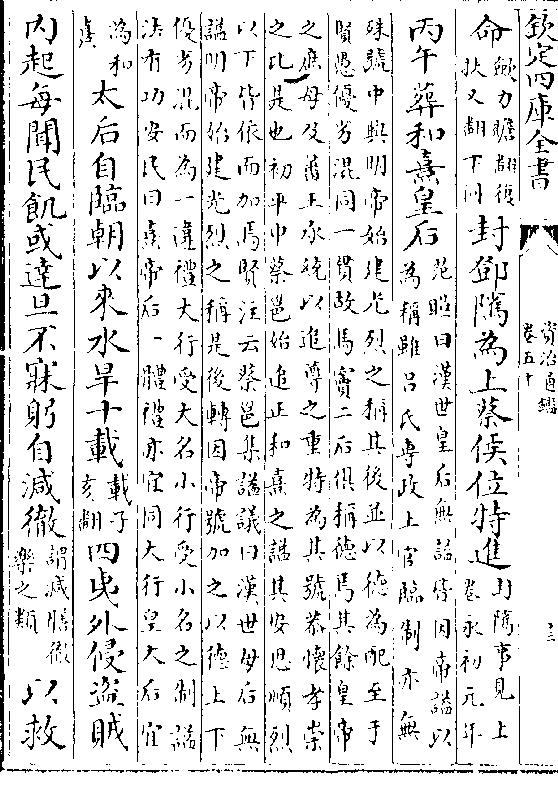 欽定四庫全書
資治通鑑
卷五十
命
歙力瞻翻復
扶又翻下同
封鄧隲為上蔡侯位特進
封隲事見上
卷永初元年
丙午葬和熹皇后
范曄曰漢世皇后無諡皆因帝諡以
為稱雖吕氏專政上官臨制亦無
殊號中興明帝始建光烈之稱其後並以德為配至于
賢愚優劣混同一貫故馬竇二后俱稱德焉其餘皇帝
之庶母及蕃王承統以追尊之重特為其號恭懷孝崇
之比是也初平中蔡邕始追正和熹之諡其安思順烈
以下皆依而加焉賢注云蔡邕集諡議曰漢世母后無
諡明帝始建光烈之稱是後轉因帝號加之以德上下
優劣混而為一違禮大行受大名小行受小名之制諡
法有功安民曰熹帝后一體禮亦宜同大行皇大后宜
為和
熹
太后自臨朝以來水旱十載
載子
亥翻
四夷外侵盜賊
内起每聞民飢或達旦不寐躬自減徹
謂減膳徹
樂之類
以救